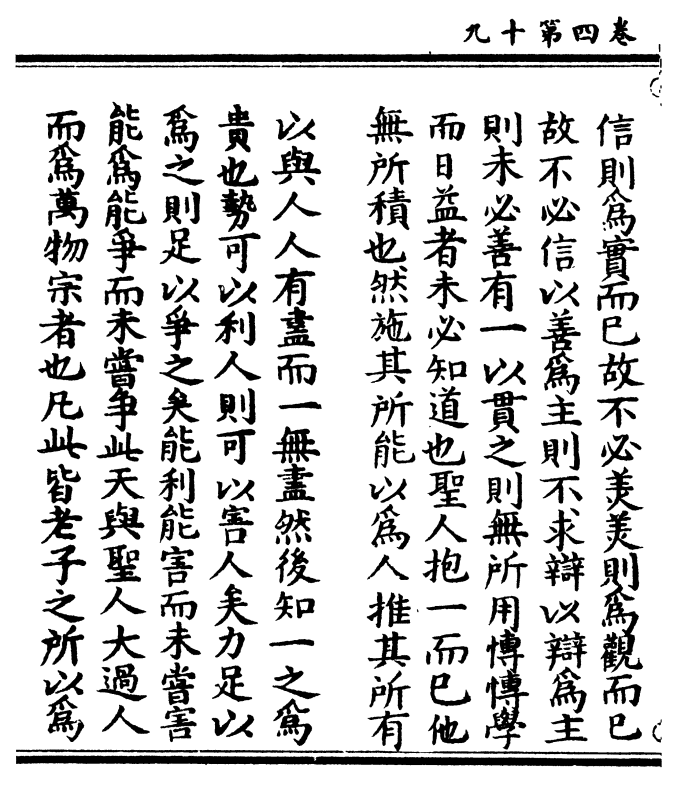 卷四第十九
信則爲實而已故不必羙羙則爲觀而已
故不必信以善爲主則不求辯以辯爲主
則未必善有一以貫之則無所用愽愽學
而日益者未必知道也聖人抱一而已他
無所積也然施其所能以爲人推其所有
以與人人有盡而一無盡然後知一之爲
貴也勢可以利人則可以害人矣力足以
爲之則足以爭之矣能利能害而未嘗害
能爲能爭而未嘗争此天與聖人大過人
而爲萬物宗者也凡此皆老子之所以爲